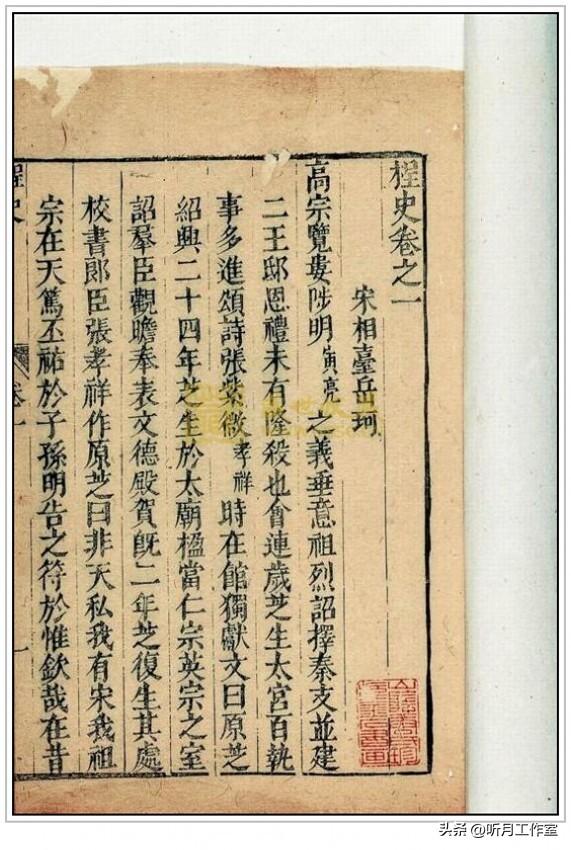 桯史卷之一
宋相臺岳珂
高宗覽婁陟明寅亮之義垂意祖烈詔擇秦支並建
二王邸恩禮未有隆殺也會連歲芝生太宮百執
事多進頌詩張紫微孝祥時在館獨獻文曰原芝
紹興二十四年芝生於太廟楹當仁宗英宗之室
詔羣臣觀瞻奉表文德殿賀旣二年芝復生其處
校書郎臣張孝祥作原芝曰非天私我有宋我祖
宗在天篤丕祐於子孫明告之符於惟欽哉在昔
桯史
卷一
一
头条 @听月工作室